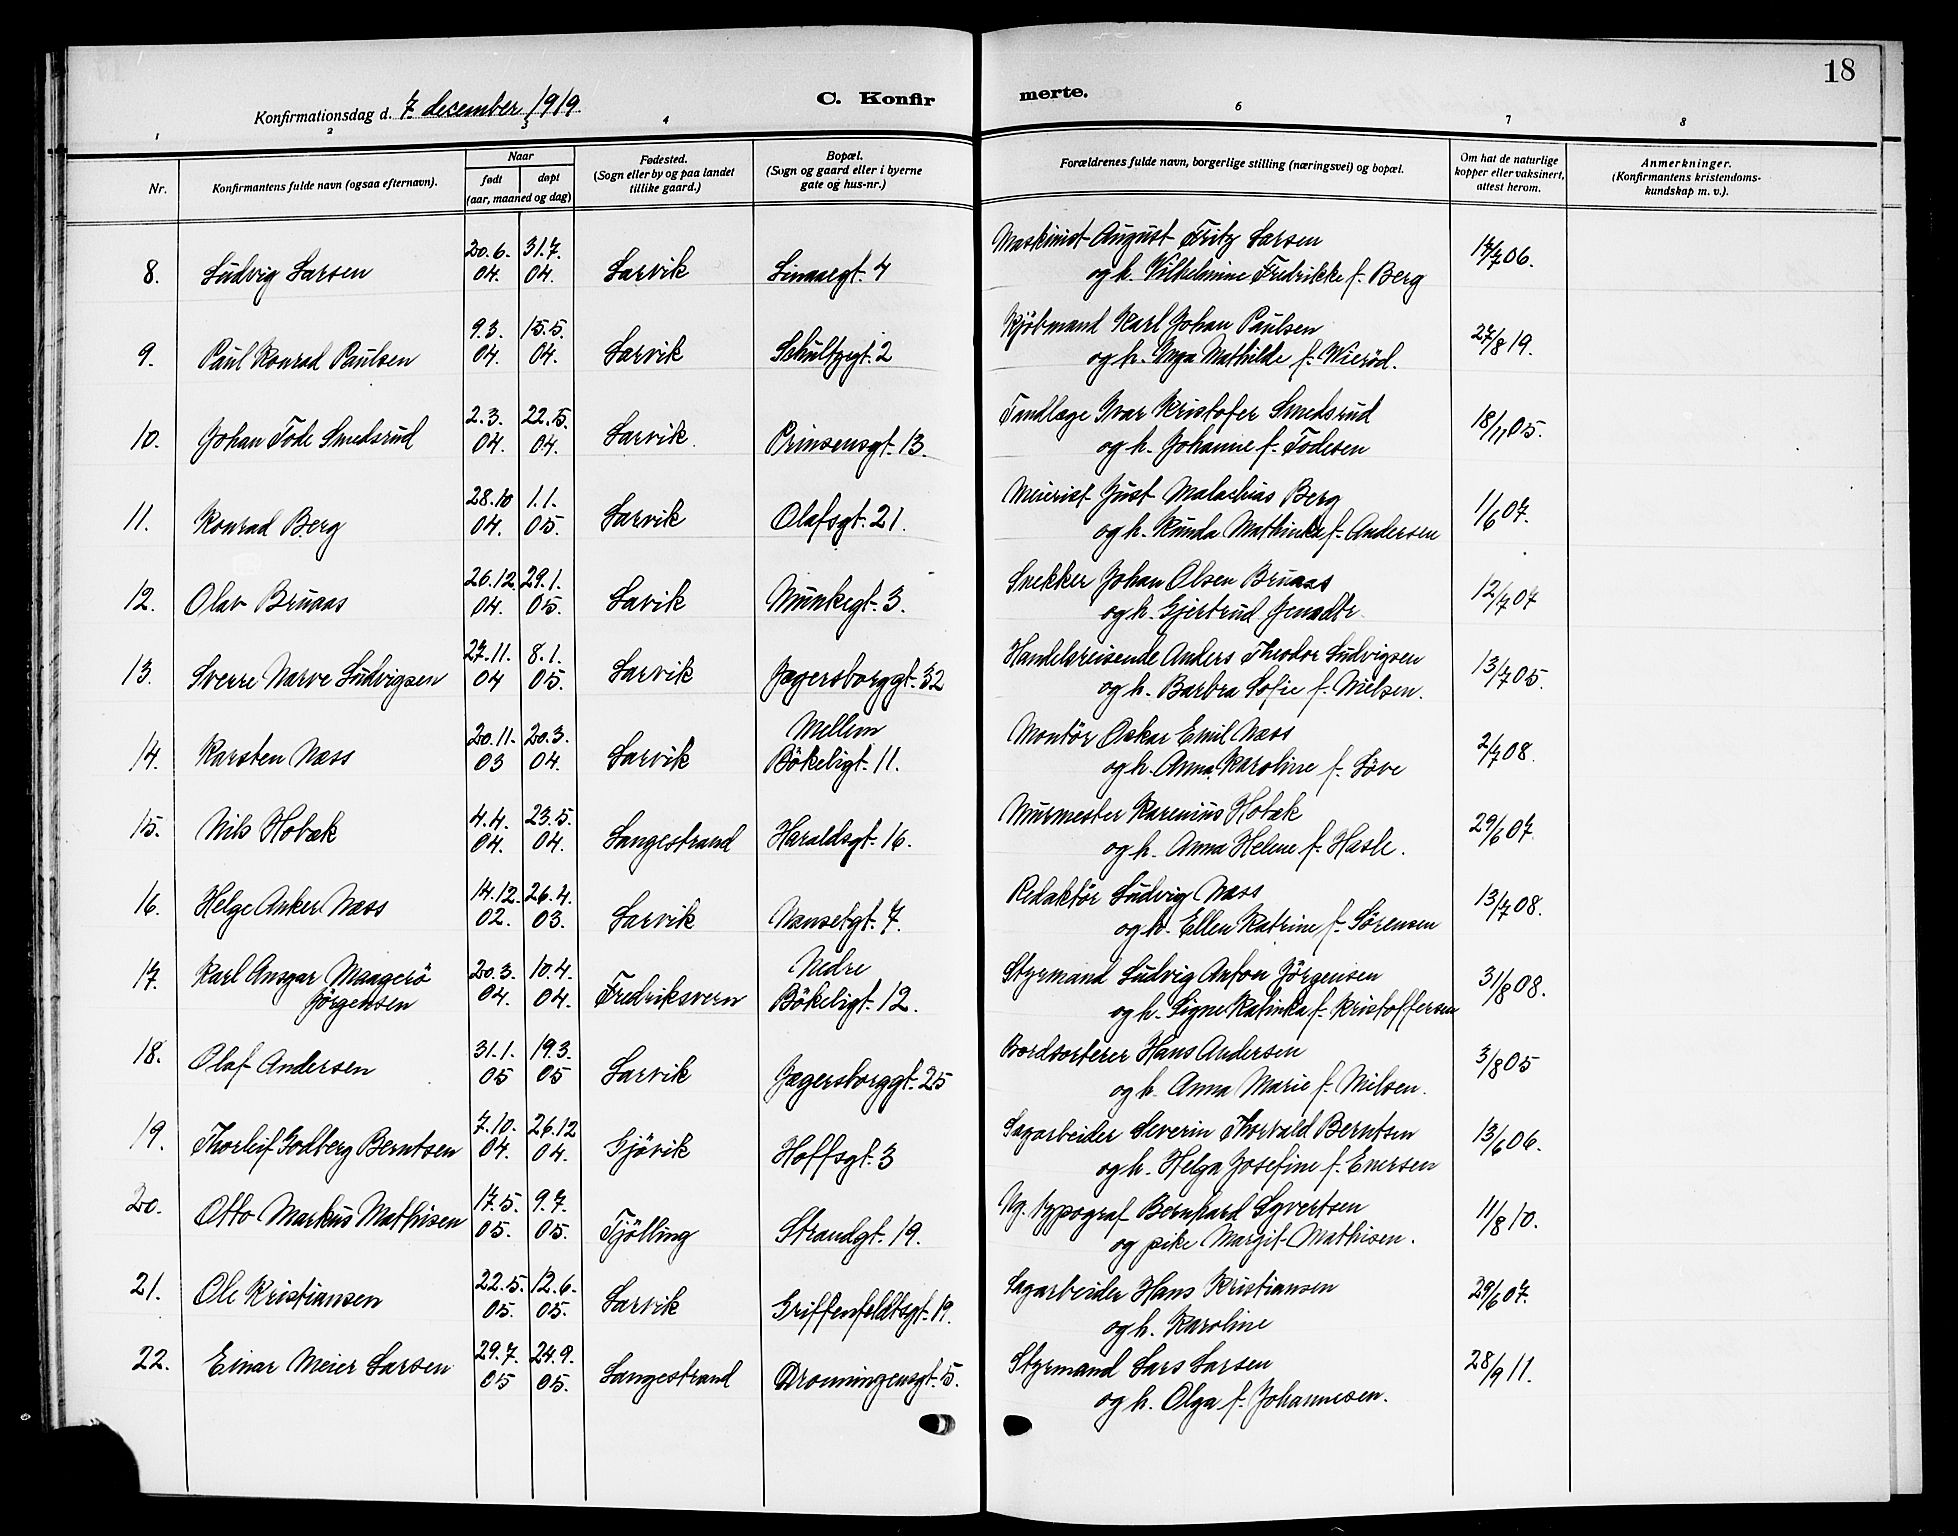 18
Konfirmationsdag d. 7 december 1919.
C. Konfir
merte.
1
2
3
4
6
7
8
Nr.
Konfirmantens fulde navn (ogsaa efternavn).
Naar
født
døpt
(aar, maaned og dag)
Fødested.
(Sogn eller by og paa landet
tillike gaard.)
Bopæl.
(Sogn og gaard eller i byerne
gate og hus-nr.)
Forældrenes fulde navn, borgerlige stilling (næringsvei) og bopæl.
Om hat de naturlige
kopper eller vaksinert,
attest herom.
Anmerkninger.
(Konfirmantens kristendoms-
kundskap m. v.).
20.6. 31.7. Maskinist August Fritz Larsen 14/7 06.
8. Ludvig Larsen 04. 04. Larvik Linaaegt. 4 og h. Vilhelmine Fredrikke f. Berg
9.3. 15.5. Kjöbmand Karl Johan Paulsen 27/8 19.
9. Paul Konrad Paulsen 04. 04. Larvik Schultzgt. 2 og h. Inga Mathilde f. Wieröd.
2.3. 22.5. Tandlæge Ivar Kristofer Smedsrud 18/11 05.
10. Johan Tode Smedsrud 04. 04. Larvik. Prinsensgt. 13. og h. Johanne f. Todesen
28.10 1.1. Meierist Just Malachias Berg 1/6 07.
11. Konrad Berg 04. 05. Larvik Olafsgt. 21. og h. Kunda Mathinka f. Andersen
26.12. 29.1. Snekker Johan Olsen Bruaas 12/7 07
12. Olav Bruaas 04. 05. Lavik Munkegt. 3. og h. Gjertrud Jensdtr.
27.11. 8.1. Handelsreisende Anders Thodor Ludvigsen 13/7 05.
13. Sverre Narve Ludvigsen 04 05. Larvik Jægersborggt. 32 og h. Barbra Sofie f. Nielsen.
20.11. 20.3. Mellem Montör Oskar Emil Næss 2/7 08.
14. Karsten Næss 03 04. Larvik Bökeligt. 11. og h. Anna Karoline f. Löve
4.4. 23.5. Murmester Karenius Hobæk 29/6 07.
15. Nils Hobæk 04. 04. Langestrand Haraldsgt. 16. og h. Anna Helene f. Hasle.
14.12. 26.4. Redaktör Ludvig Næss 13/7 08.
16. Helge Anker Næss 02. 03. Larvik Nansetgt. 7. og h. Ellen Katrine f. Sörensen
17. Karl Ansgar Maagerö 20.3. 10.4. Nedre Styrmand Ludvig Anton Jörgensen 31/8 08.
Jörgensen 04. 04. Fredriksvern Bökeligt. 12. og h. Signe Katinka f. Kristoffersen
31.1. 19.3. Bordsorterer Hans Andersen 3/8 05
18. Olaf Andersen 05 05 Larvik Jægersborggt. 25 og h. Anna Marie f. Nilsen.
7.10. 26.12 Sagarbeider Severin Thorvald Berntsen 13/6 06.
19. Thorleif Godberg Berntsen 04. 04. Gjövik Hoffsgt. 3 og h. Helga Josefine f. Enersen
17.5. 9.7. Ug. typograf Bernhard Syvertsen 11/8 10.
20. Otto Markus Mathisen 05. 05. Tjölling Strandgt. 19. og pike Margit Mathisen.
22.5. 12.6. Sagarbeider Hans Kristiansen 29/6 07.
21. Ole Kristiansen 05. 05. Larvik Griffenfeldtsgt. 19. og h. Karoline
29.7. 24.9. Styrmand Lars Larsen 28/9 11.
22. Einar Meier Larsen 05 05. Langestrand Dronningensgt. 5. og h. Olga f. Johannesen.